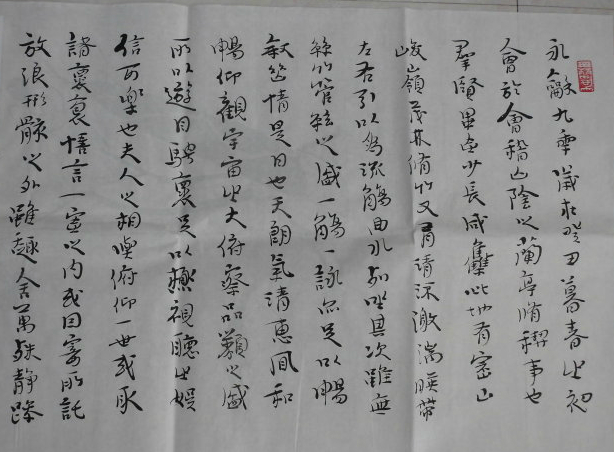 永龢九年歲在癸丑暮春之初
會於會稽山陰之蘭亭脩禊事也
羣賢畢至少長咸集此地有崇山
峻嶺茂林脩竹又有清流激湍暎帶
左右引以為流觴曲水列坐其次雖無
絲竹管絃之盛一觴一詠亦足以暢
敘幽情是日也天朗氣清惠風和
暢仰觀宇宙之大俯察品類之盛
所以遊目騁懷足以極視聽之娛
信可樂也夫人之相與俯仰一世或取
諸懷抱悟言一室之內或因寄所託
放浪形骸之外雖趣舍萬殊靜躁